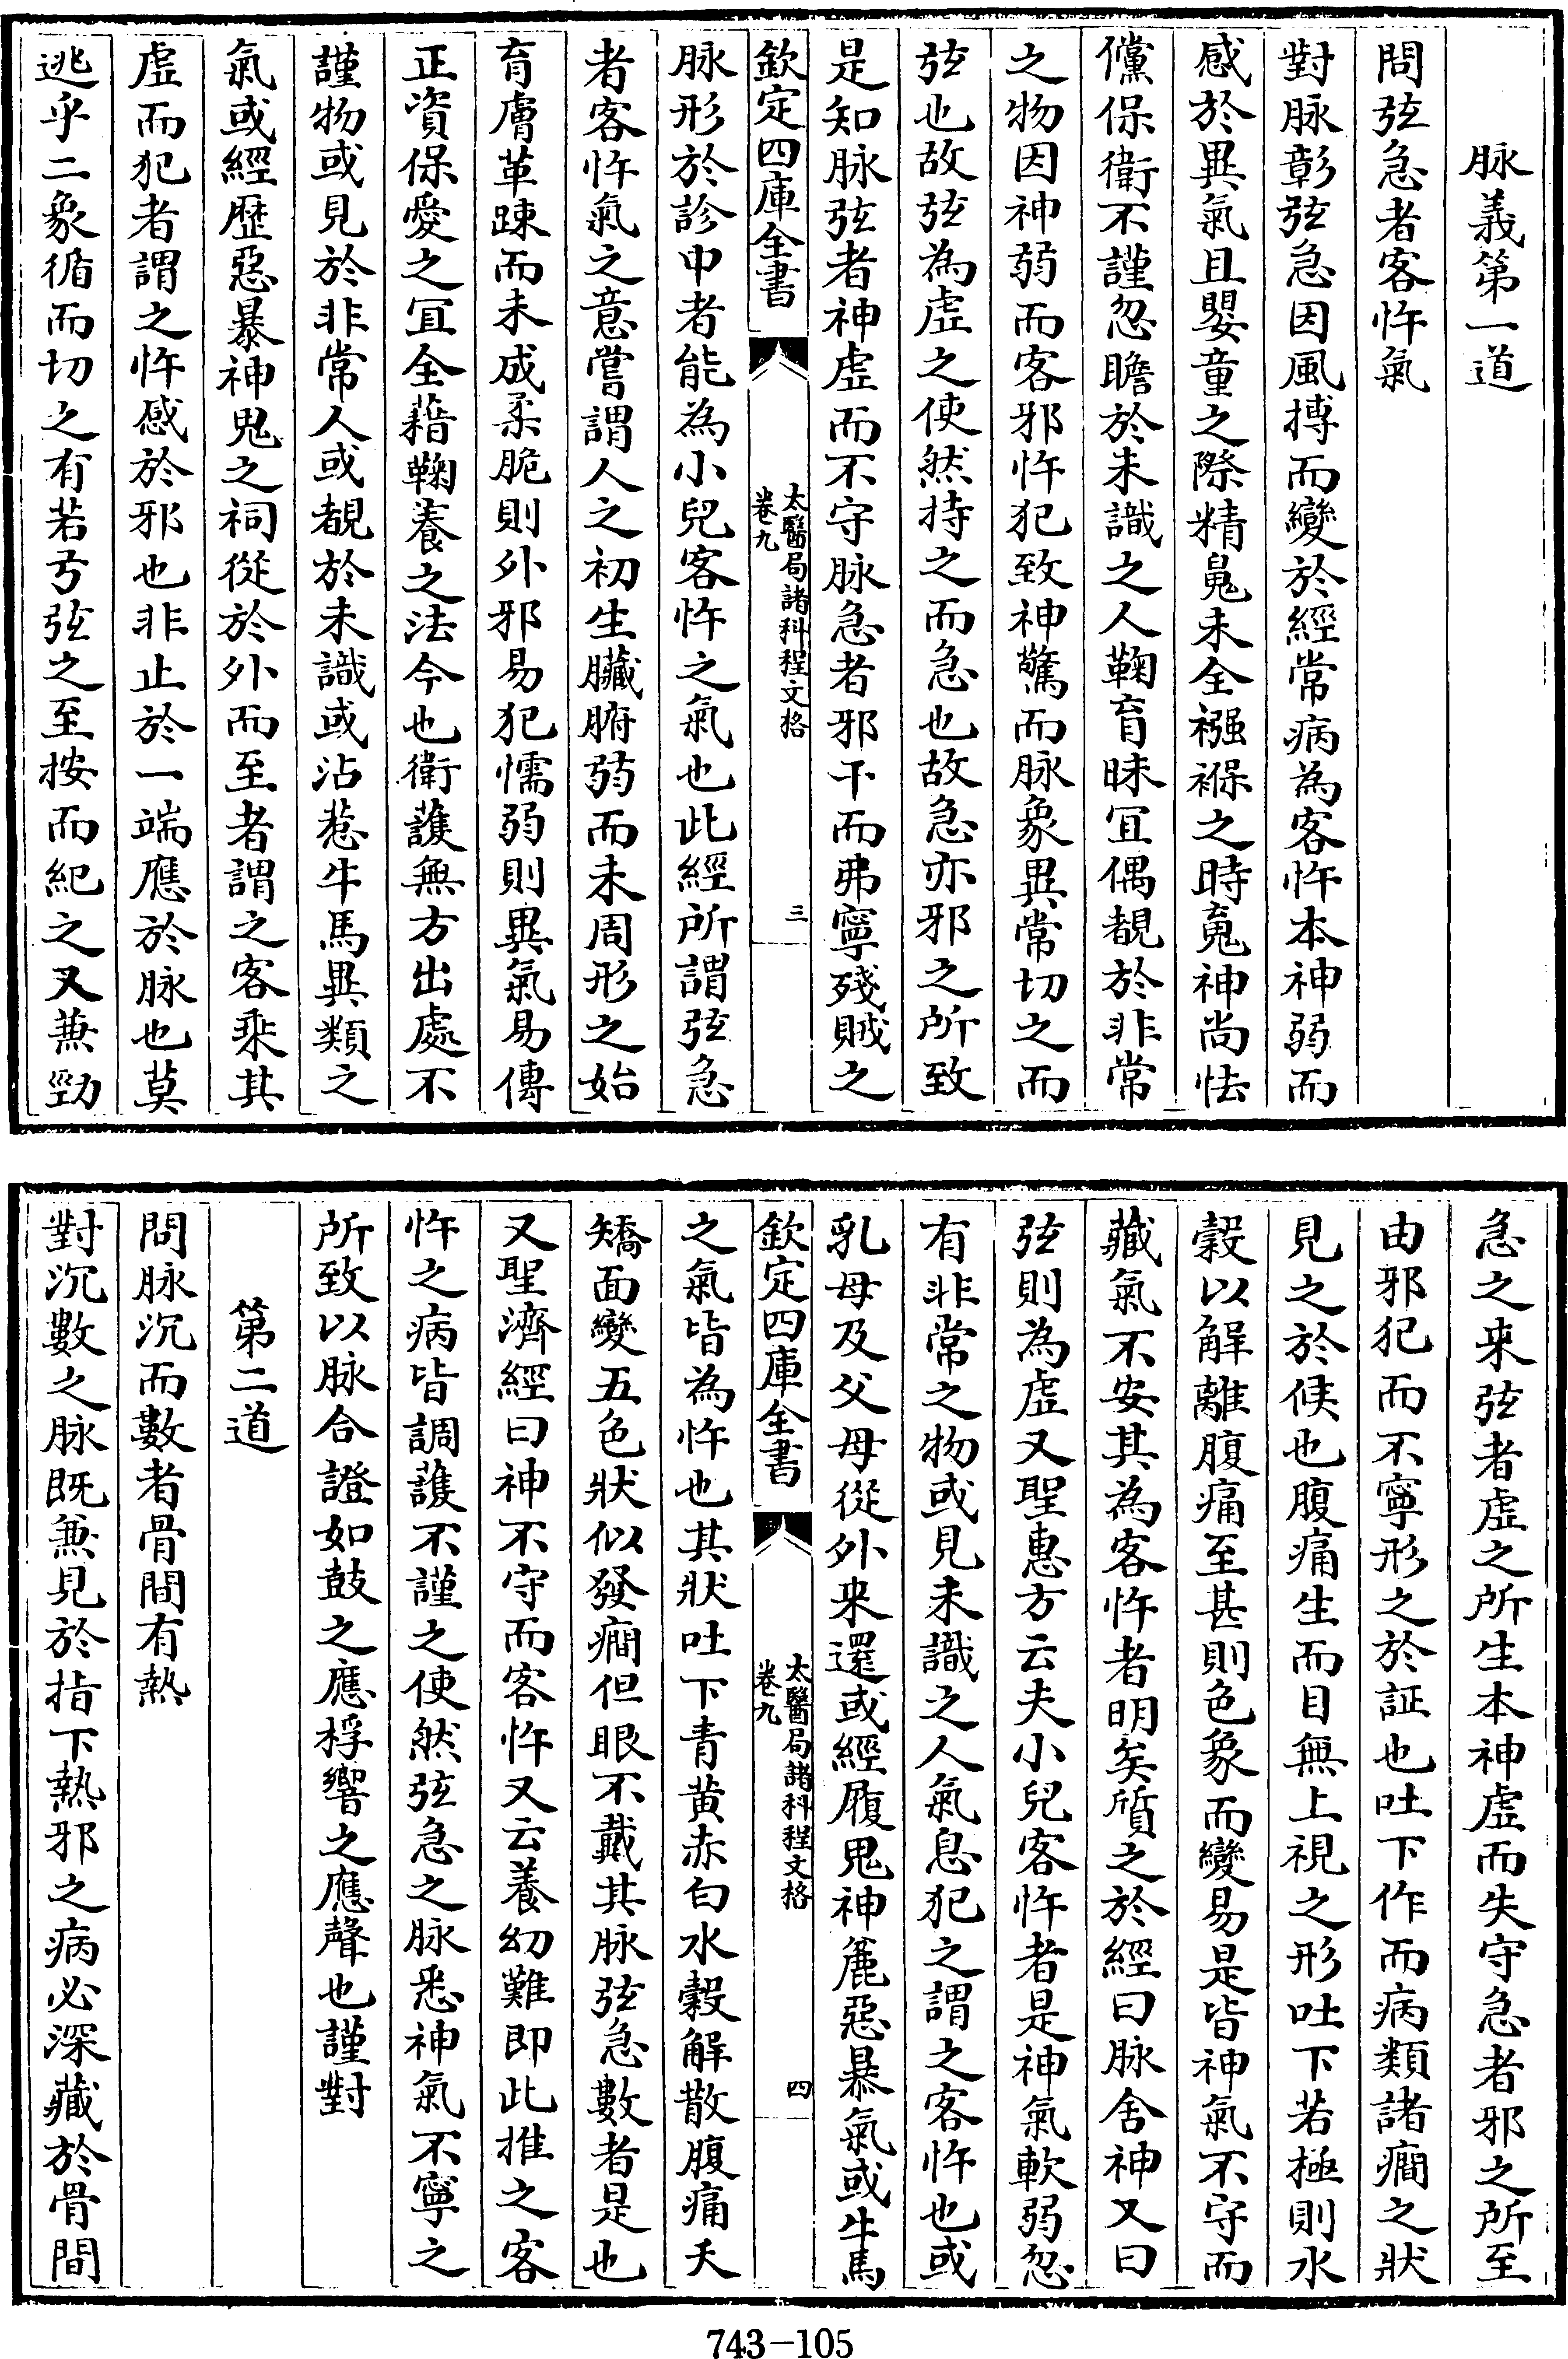 脉義第一道
問弦急者客忤氣
對脉彰弦急因風搏而變於經常病為客忤本神弱而
感於異氣且嬰童之際精䰟未全襁褓之時䰟神尚怯
儻保衛不謹忽瞻於未識之人鞠育昧宜偶覩於非常
之物因神弱而客邪忤犯致神驚而脉象異常切之而
弦也故弦為虛之使然持之而急也故急亦邪之所致
是知脉弦者神虛而不守脉急者邪干而弗寧殘賊之
欽定四庫全書
太醫局諸科程文格
卷九
三
脉形於診中者能為小兒客忤之氣也此經所謂弦急
者客忤氣之意嘗謂人之初生臟腑弱而未周形之始
育膚革踈而未成柔脆則外邪易犯懦弱則異氣易傳
正資保愛之宜全藉鞠養之法今也衛護無方出處不
謹物或見於非常人或覩於未識或沾惹牛馬異類之
氣或經歷惡暴神鬼之祠從於外而至者謂之客乘其
虛而犯者謂之忤感於邪也非止於一端應於脉也莫
逃乎二象循而切之有若弓弦之至按而紀之又兼勁
急之来弦者虛之所生本神虛而失守急者邪之所至
由邪犯而不寧形之於証也吐下作而病類諸癇之狀
見之於候也腹痛生而目無上視之形吐下若極則水
穀以解離腹痛至甚則色象而變易是皆神氣不守而
藏氣不安其為客忤者明矣質之於經曰脉舍神又曰
弦則為虛又聖惠方云夫小兒客忤者是神氣軟弱忽
有非常之物或見未識之人氣息犯之謂之客忤也或
乳母及父母從外来還或經履鬼神麄惡暴氣或牛馬
欽定四庫全書
太醫局諸科程文格
卷九
四
之氣皆為忤也其狀吐下青黄赤白水穀解散腹痛夭
矯面變五色狀似發癇但眼不戴其脉弦急數者是也
又聖濟經曰神不守而客忤又云養幼難即此推之客
忤之病皆調護不謹之使然弦急之脉悉神氣不寧之
所致以脉合證如鼓之應桴響之應聲也謹對
第二道
問脉沉而數者骨間有熱
對沉數之脉既兼見於指下熱邪之病必深藏於骨間
743-105